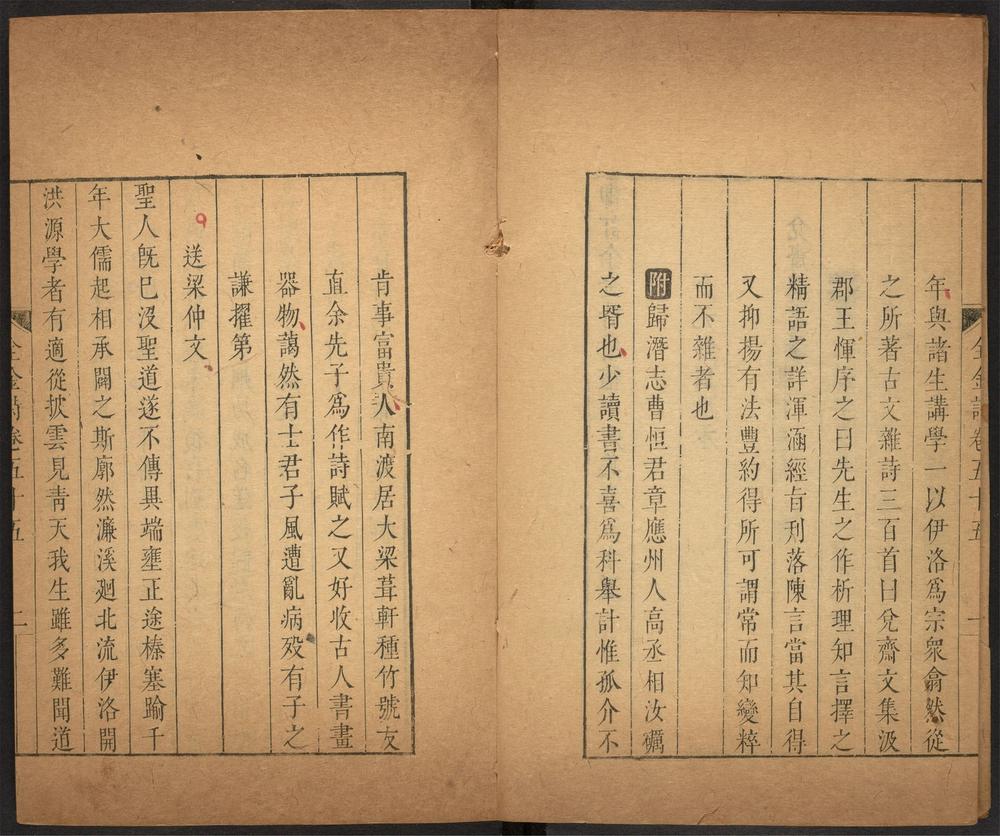 全金詩卷五十五 一
年與諸生講學一以伊洛爲宗衆翕然從
之所著古文雜詩三百首曰兌齋文集汲
郡王惲序之曰先生之作析理知言擇之
精語之詳渾涵經旨刋落陳言當其自得
又抑揚有法豐約得所可謂常而知變粹
而不雜者也
附歸潛志曹恒君章應州人高丞相汝礪
之壻也少讀書不喜爲科舉計惟孤介不
肯事富貴人南渡居大梁葺軒種竹號友
直余先子爲作詩賦之又好收古人書畫
器物藹然有士君子風遭亂病歿有子之
謙擢第
送梁仲文
聖人旣巳沒聖道遂不傳異端壅正途榛塞踰千
年大儒起相承闢之斯廓然濂溪廻北流伊洛開
洪源學者有適從披雲見靑天我生雖多難聞道
全金詩卷五十五 二